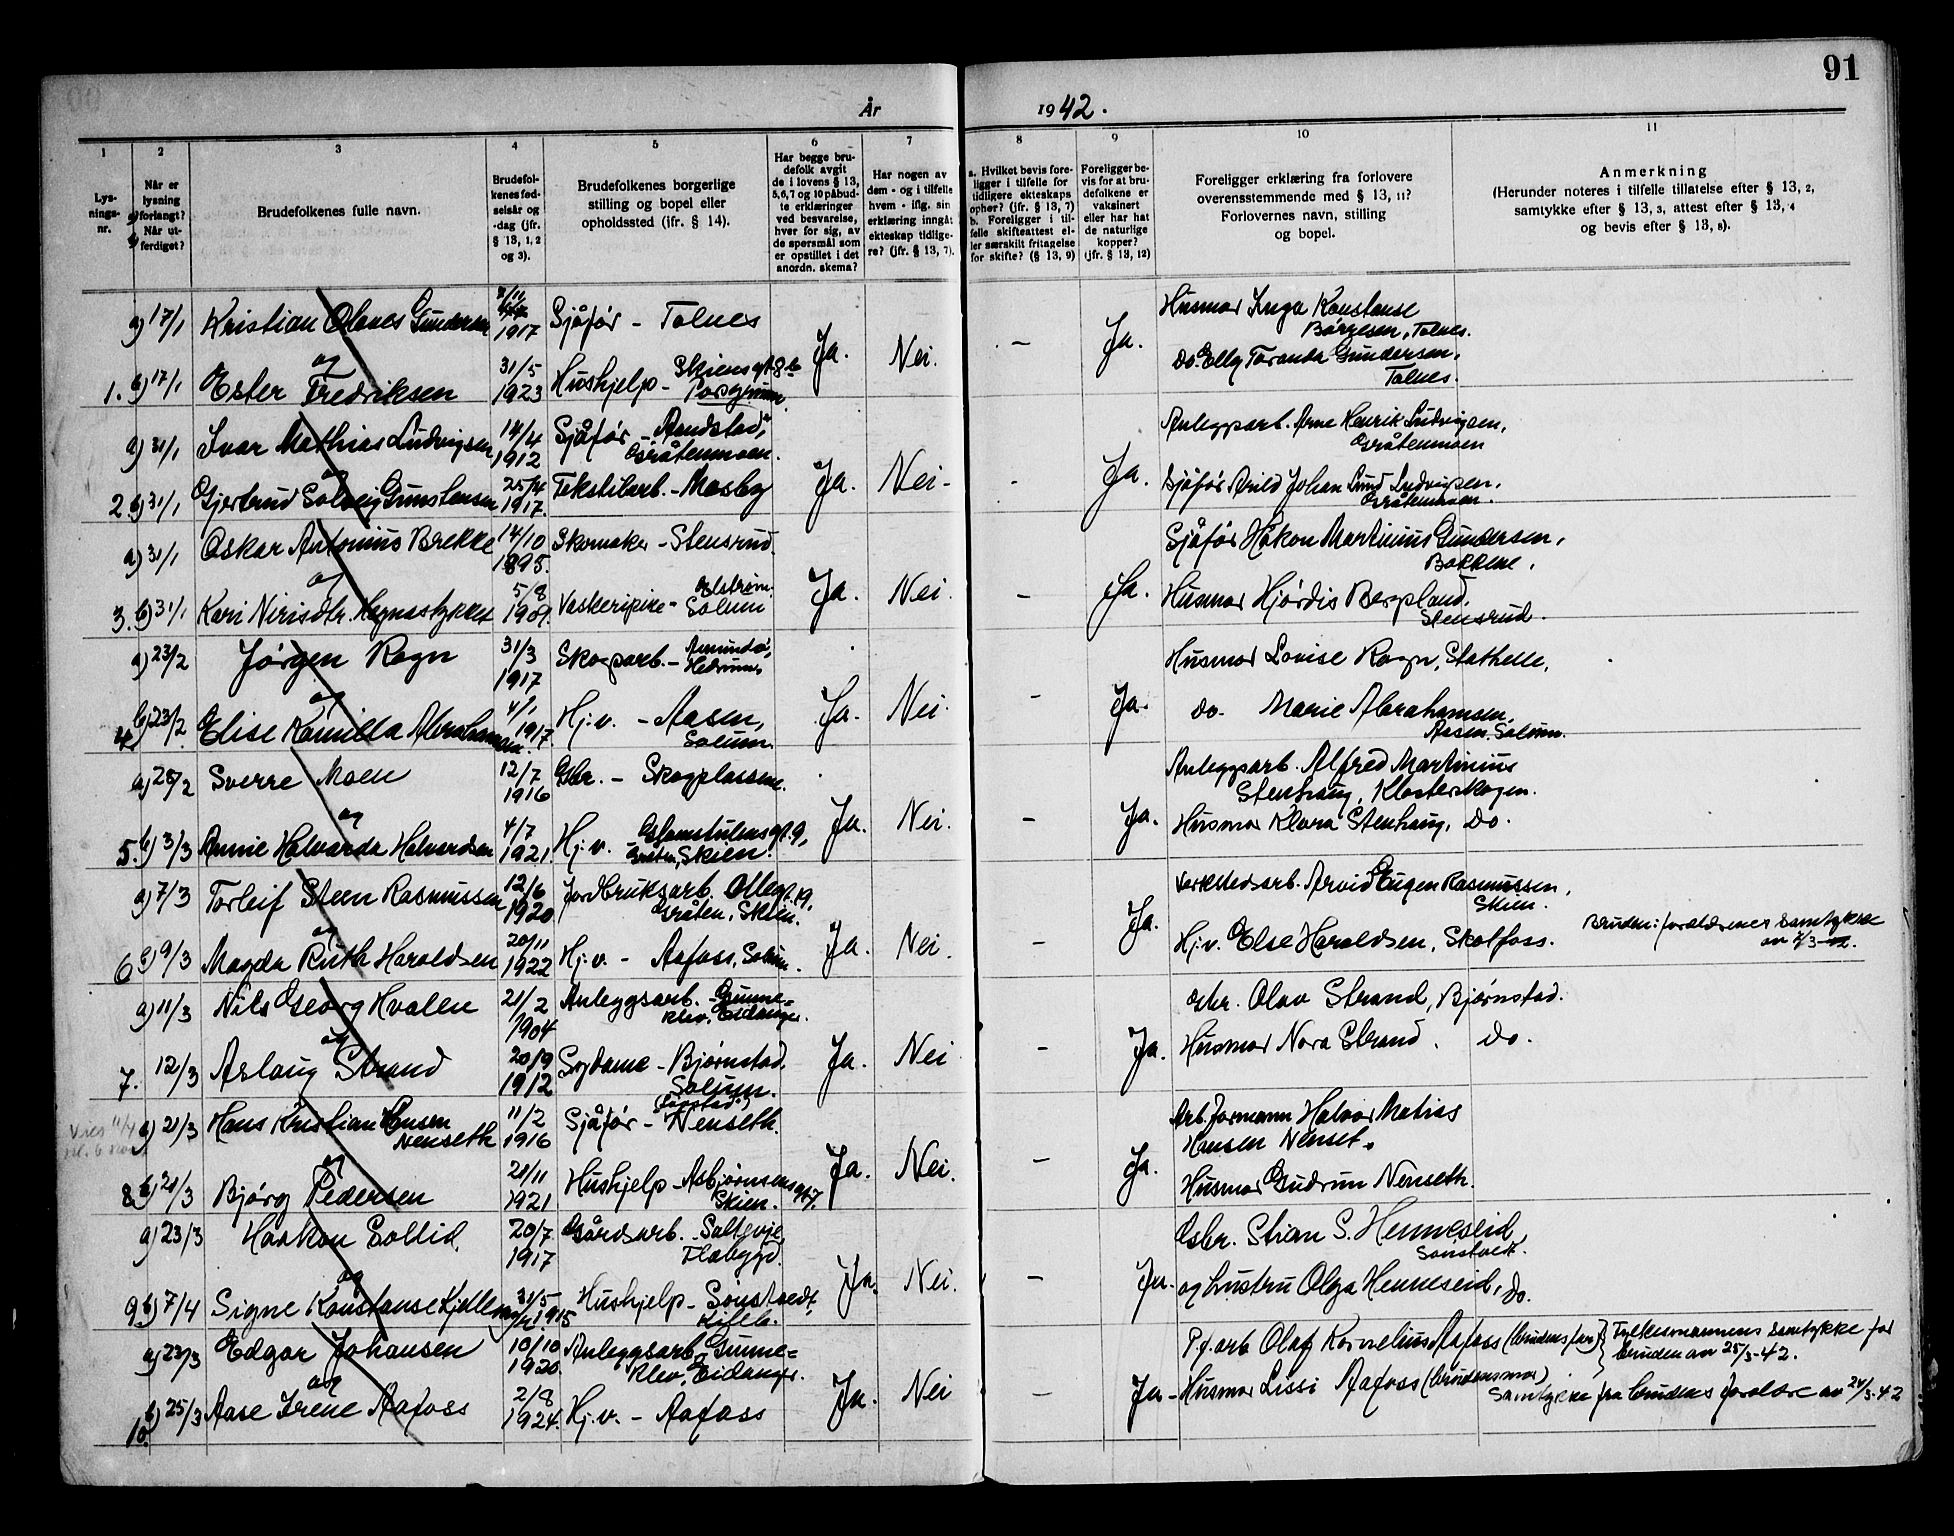 91
År 1942.
1
Lys-
nings-
nr.
2
Når er
a) lysning
forlangt?
b) Når ut-
ferdiget?
3
Brudefolkenes fulle navn.
4
Brudefol-
kenes fød-
selsår og
-dag (jfr.
§ 13, 1, 2
og 3).
5
Brudefolkenes borgerlige
stilling og bopel eller
opholdssted (jfr. § 14).
6
Har begge bru-
defolk avgit
de i lovens § 13,
5,6,7 og 10 påbud-
te erklæringer
ved besvarelse,
hver for sig, av
de spørsmål som
er opstillet i det
anordn. skema?
7
Har nogen av
dem - og i tilfelle
hvem - iflg. sin
erklæring inngåt
ekteskap tidlige-
re? (jfr. § 13, 7).
8
a. Hvilket bevis fore-
ligger i tilfelle for
tidligere ekteskaps
ophør? (jfr. § 13, 7)
b. Foreligger i til-
felle skifteattest el-
ler særskilt fritagelse
for skifte? (§ 13, 9)
9
Foreligger be-
vis for at bru-
defolkene er
vaksinert
eller har hat
de naturlige
kopper?
(jfr. § 13, 12)
10
Foreligger erklæring fra forlovere
overensstemmende med § 13, 11?
Forlovernes navn, stilling
og bopel.
11
Anmerkning
(Herunder noteres i tilfelle tillatelse efter § 13, 2,
samtykke efter § 13, 3, attest efter § 13, 4
og bevis efter § 13, 8).
a) 17/1 Kristian Olaves Gundersen 1917 Sjåfør - Tolnes
Husmor Inga Konstanse
Børgesen, Tolnes.
og
Ja. Nei. - Ja.
do. Elly Toranda Gundersen,
Tolnes.
1. b) 17/1 Ester Fredriksen 31/5 1923 Hushjelp - Skiensgt. 8 b
Porsgrunn
a) 31/1 Ivar Mathias Ludvigsen 14/4 1912 Sjåfør -
Gråtenmoen.
Anleggsarb. Arne Henrik Ludvigsen,
Gråtenmoen
og
2. b) 31/1 Gjertrud Solveig Gunstensen 25/4 1917. Tekstilarb. - Mæsby Ja. Nei - - Ja.
Sjåfør Arild Johan Lund Ludvigsen,
Gråtenmoen.
a) 31/1 Oskar Antonius Brekke 14/10 1895. Skomaker - Stensrud.
Sjåfør Håkon Martinius Gundersen,
Bakkene.
og
3. b) 31/1 Kari Nirisdtr. Høgnastykket 5/8 1909. Vaskeripike - Elstrøm.
Solum
Ja. Nei. - Ja.
Husmor Hjørdis Bergland,
Stensrud.
a) 23/2 Jørgen Rogn 31/3 1917 Skogsarb. - Amundrø,
Hedrum,
Husmor Lovise Rogn, Stathelle,
og
4. b) 23/2 Elise Kamilla Abrahamsen. 4/1 1917. Hj.v. - Aasen,
Solum.
Ja. Nei. - Ja.
do. Marie Abrahamsen,
Aasen, Solum.
a) 28/2 Sverre Moen 12/7 1916 Gbr. - Skogplassene.
Anleggsarb. Alfred Martinius
Stenhaug, Klosterskogen.
og
5. b) 3/3 Annie Halvarda Halvardsen 4/7 1921. Hj.v. - Glomstulensgt. 9,
Gråten, Skien.
Ja. Nei. - Ja. Husmor Klara Stenhaug, do.
a) 7/3 Torleif Steen Rasmussen 12/6 1920 Jordbruksarb. Ollegt. 19,
Gråten, Skien.
Verkstedsarb. Arvid Eugen Rasmussen,
Skien.
og
6. b) 9/3 Magda Ruth Haroldsen 20/11 1922 Hj.v. - Aafoss, Solum. Ja. Nei. - Ja.
Hj.v. Else Haroldsen, Skotfoss.
Bruden: foreldrenes samtykke
av 7/3-42.
a) 11/3 Nils Georg Hvalen 21/2 1904 Anleggsarb. - Gunne=
klev, Eidanger.
Gbr. Olav Strand, Bjørnstad.
og
7. 12/3 Aslaug Strand 20/9 1912 Sydame - Bjørnstad.
Solum.
Ja. Nei - Ja. Husmor Nora Strand. do.
Vies 11/4
kl. 6
a) 21/3 Hans Kristian Hansen
Nenseth
11/2 1916 Sjåfør - Nenseth.
Arb.formann Halvor Matias
Hansen Nenset.
og
8. b) 21/3 Bjørg Pedersen 21/11 1921 Hushjelp - Asbjørnsensgt. 7.
Skien.
Ja. Nei. - Ja.
Husmor Gudrun Nenseth.
a) 23/3 Haakon Sollid. 20/7 1917 Gårdsarb. -
Flåbygd.
Gbr. Stian S. Henneseid,
og
9. b) 7/4 Signe Konstanse Kjellevoll 31/5 1915 Hushjelp -
Ja. Nei. - Ja.
og hustru Olga Henneseid, do.
a) 23/3 Edgar Johansen 10/10 1920. Anleggsarb. Gunne=
klev, Eidanger.
P.f. arb Olaf Kornelius Aafoss (brudens far)
Fylkesmannens samtykke for
bruden av 25/3-42.
og
10. b) 25/3 Aase Irene Aafoss 2/8 1924. Hj.v. - Aafoss Ja. Nei - Ja -
Husmor Lissi Aafoss (brudens mor)
Samtykke fra brudens foreldre av 24/3-42